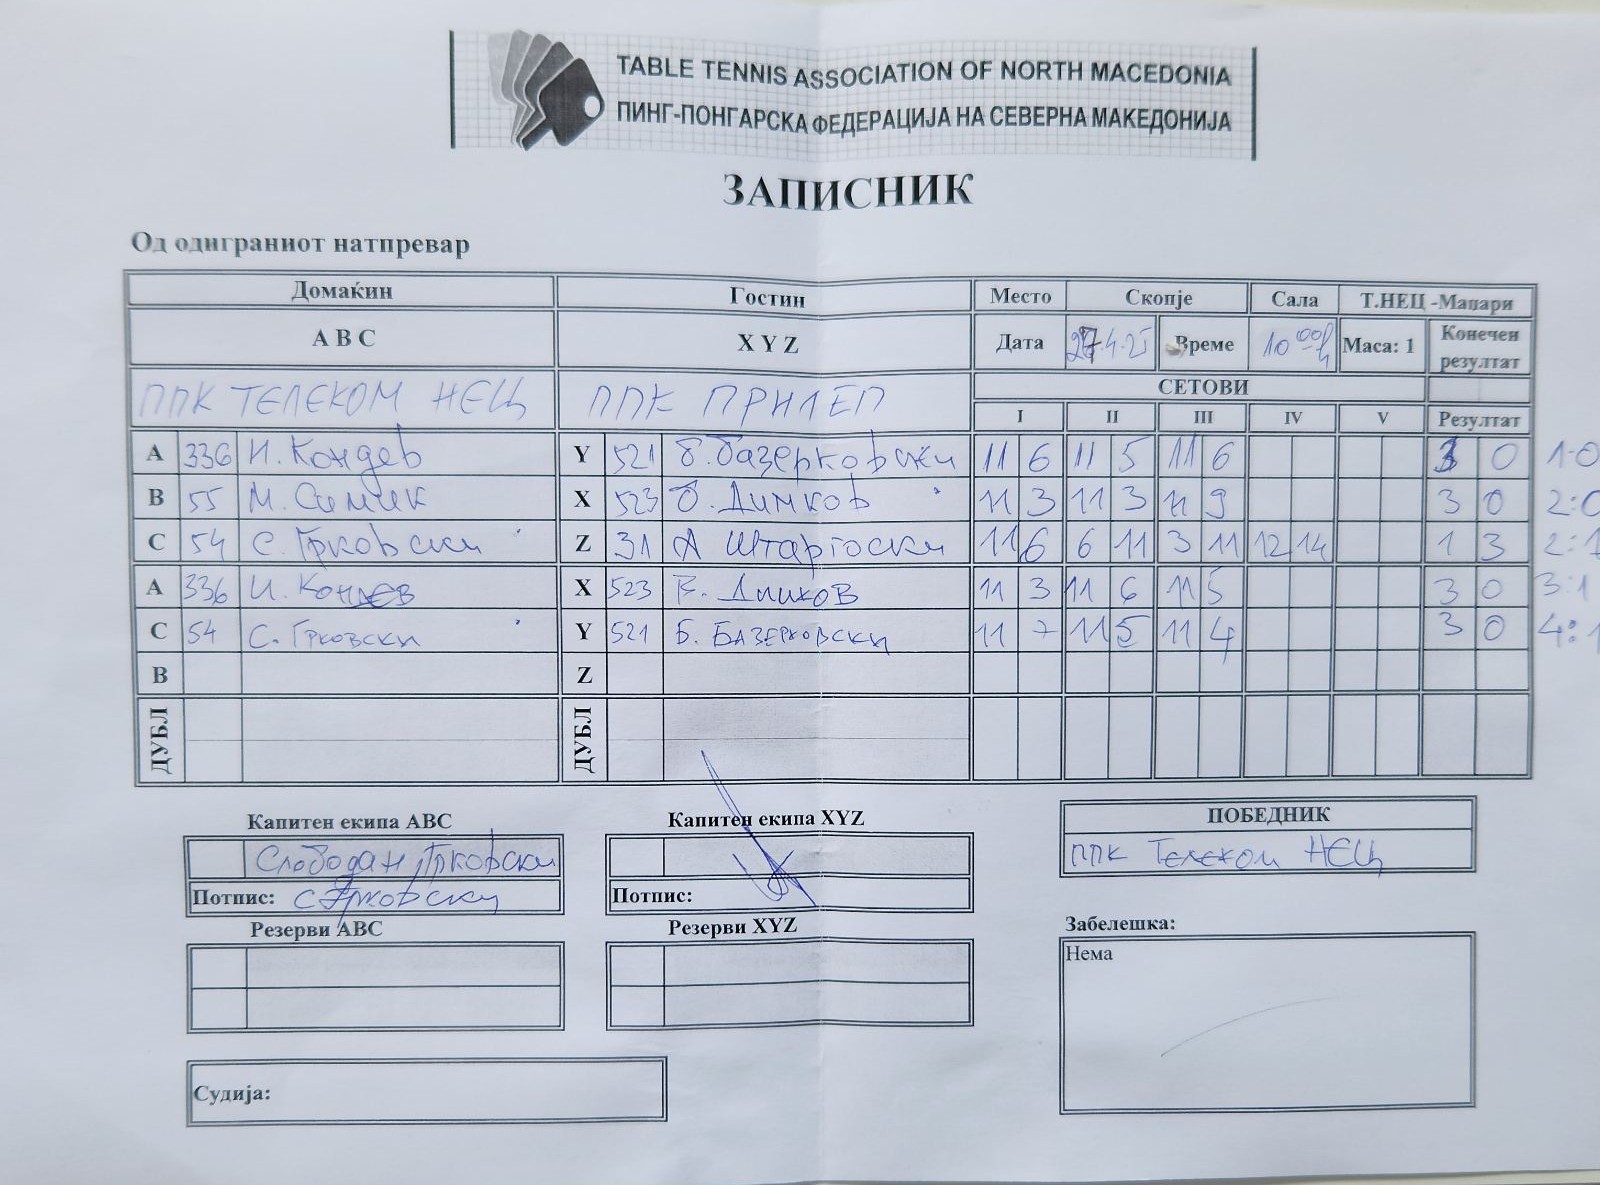 TABLE TENNIS ASSOCIATION OF NORTH MACEDONIA
ПИНГ-ПОНГАРСКА ФЕДЕРАЦИЈА НА СЕВЕРНА МАКЕДОНИЈА
ЗАПИСНИК
Од одиграниот натпревар
Домаќин Гостин Место Скопје Сала Т.НЕЦ -Мапари
A B C X Y Z Дата 27.4.25 Време 10 00h Маса: 1 Конечен резултат
ППК ТЕЛЕКОМ НЕЦ ППК ПРИЛЕП СЕТОВИ
I II III IV V Резултат
A 336 И. Кондев Y 521 Б. Базерковски 11 6 11 5 11 6 3 0 1-0
B 55 М. Симик X 523 Димков 11 3 11 3 11 9 3 0 2:0
C 54 С. Грковски Z 31 А Штаргоски 11 6 6 11 3 11 12 14 1 3 2:1
A 336 И. Кондев X 523 Димков 11 3 11 6 11 5 3 0 3:1
C 54 С. Грковски Y 521 Б. Базерковски 11 7 11 5 11 4 3 0 4:1
B Z
ДУБЛ ДУБЛ
Капитен екипа ABC Капитен екипа XYZ ПОБЕДНИК
Слободан Грковски ППК Телеком НЕЦ
Потпис: С Грковски Потпис:
Резерви ABC Резерви XYZ Забелешка:
Нема
Судија: